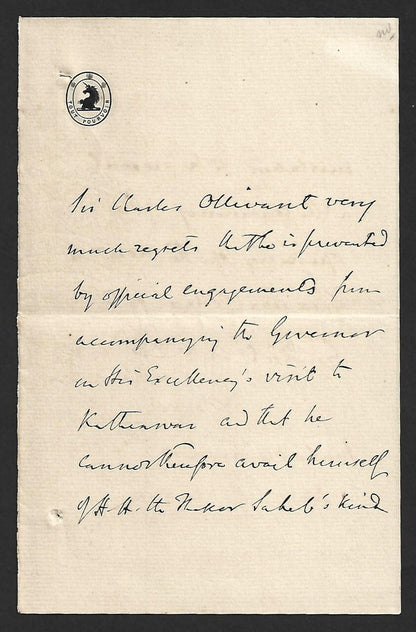 TOUT POURVOIR
Sir Charles Ollivant very
much regrets that he is prevented
by official engagements from
accompanying the Governor
on His Excellency's visit to
Kathiawar and that he
cannot therefore avail himself
of H. H. the Thakor Saheb's kind